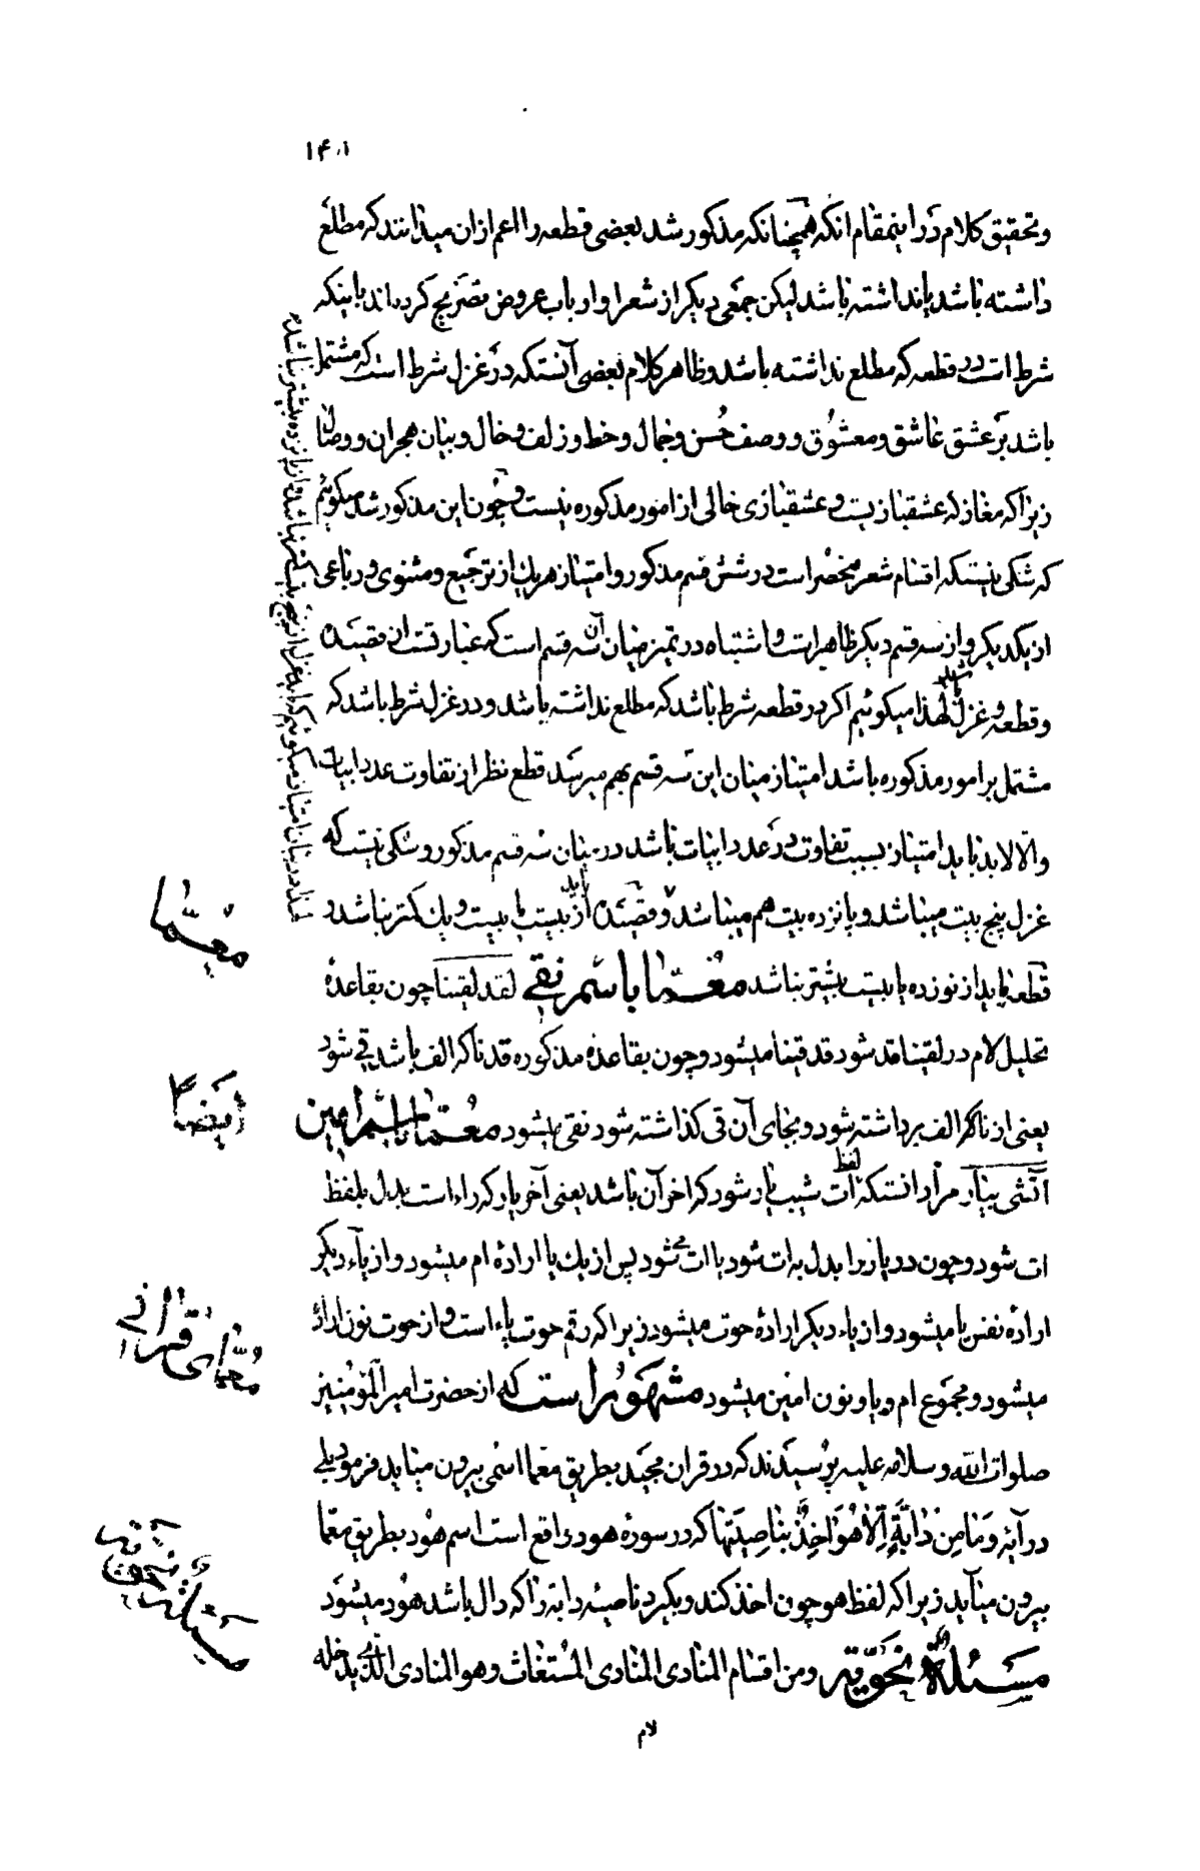 ۱۴۰۱
و تحقیق کلام در اینمقام انکه همچنانکه مذکور شد بعضی قطعه را اعم از ان میدانند که مطلع
داشته باشد یا نداشته باشد لیکن جمعی دیکر از شعرا و ارباب عروض تصریح کرده اند باینکه
شرط است در قطعه که مطلع نداشته باشد و ظاهر کلام بعضی آنستکه در غزل شرط است که مشتمل
باشد بر عشق عاشق و معشوق و وصف حُسن و جمال و خط و زلف و خال و بیان هجران و وصال
زیرا که مغازله عشقبازیست و عشقبازی خالی از امور مذکوره نیست و چون این مذکور شد میکوئیم
که شکی نیستکه اقسام شعر منحصر است در شش قسم مذکور و امتیاز هر یک از ترجیع و مثنوی و رباعی
از یکدیکر و از سه قسم دیکر ظاهر است و اشتباه در تمیز میان آن سه قسم است که عبارتست از قصیده
و قطعه و غزل لهذا میکوئیم اکر در قطعه شرط باشد که مطلع نداشته باشد و در غزل شرط باشد که
مشتمل بر امور مذکوره باشد امتیاز میان این سه قسم بهم میرسد قطع نظر از تفاوت عدد ابیات
و الا لابد باید امتیاز بسبب تفاوت در عدد ابیات باشد در میان سه قسم مذکور و شکی نیست که
غزل پنج بیت میباشد و پانزده بیت هم میباشد و قصیده از بیست یا بیست و یک کمتر نباشد و
قطعه باید از نوزده یا بیست بیشتر نباشد معمّا باسم نقی لقد لقینا چون بقاعدهٔ
تحلیل لام در لقینا قد شود قد قینا میشود و چون بقاعدهٔ مذکوره قد نا که الف باشد قی شود
یعنی از نا الف برداشته شود و بجای آن قی کذاشته شود نقی میشود معمّا باسم امین
اتنی بیار مراد انستکه لفظ ات شبب یار شود که اخر آن باشد یعنی آخر یار که راء است بدل بلفظ
ات شود و چون در یار را بدل به ات شود یا ات شود پس از یک یا ارادهٔ ام میشود و از یاء دیکر
ارادهٔ نفس یا میشود و از یاء دیکر ارادهٔ حوت میشود زیرا که رقم حوت یاء است و از حوت نون اراده
میشود و مجموع ام و یا و نون امین میشود مشهور است که از حضرت امیر المؤمنین
صلوات الله و سلامه علیه پرسیدند که در قران مجید بطریق معما اسمی بیرون میاید فرمود بلی
در آیه وَ مَا مِن دَابَّةٍ اِلّا هُوَ اخِذٌ بناصِیَتِها که در سورهٔ هود واقع است اسم هُود بطریق معمّا
بیرون میآید زیرا که لفظ هو چون اخذ کند و بکیرد ناصیهٔ دابه را که دال باشد هُود میشود
مَسئلةٌ نحویّة و من اقسام المنادی المنادی المُستغاث و هو المنادی الذی یدخله
لام
معمّا
ایضا
معمّای قرانی
مسئلة نحویة